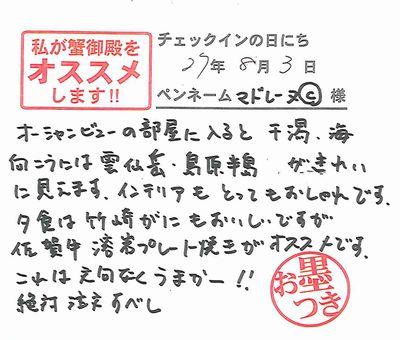 私が蟹御殿を
オススメ
します!!
チェックインの日にち
27年 8月 3日
ペンネーム マドレーヌⓒ 様
オーシャンビューの部屋に入ると 干潟、海
向こうには 雲仙岳・島原半島 がきれい
に見えます。インテリアも とってもおしゃれです。
夕食は 竹崎がにもおいしいですが
佐賀牛 溶岩プレート焼きがオススメです。
これは文句なくうまかー!!
絶対 注文すべし
お墨つき